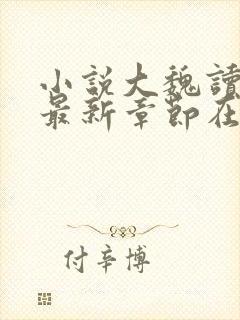 小説大魏讀
最新章節在
付辛博